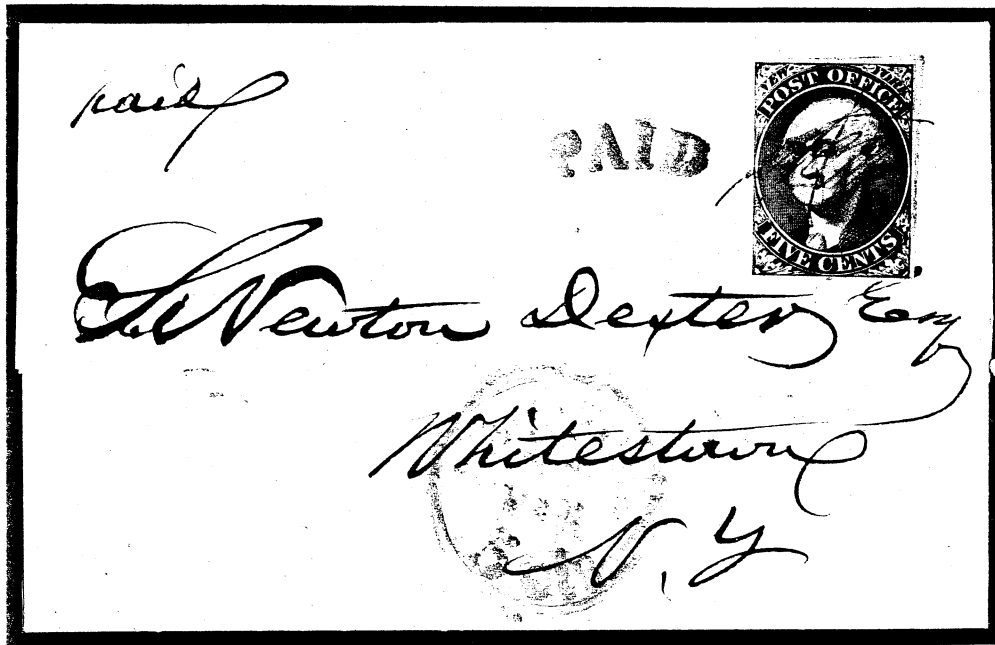 paid
PAID
NEW YORK
POST OFFICE
FIVE CENTS
S Newton Dexter Esq
Whitestown
N. Y